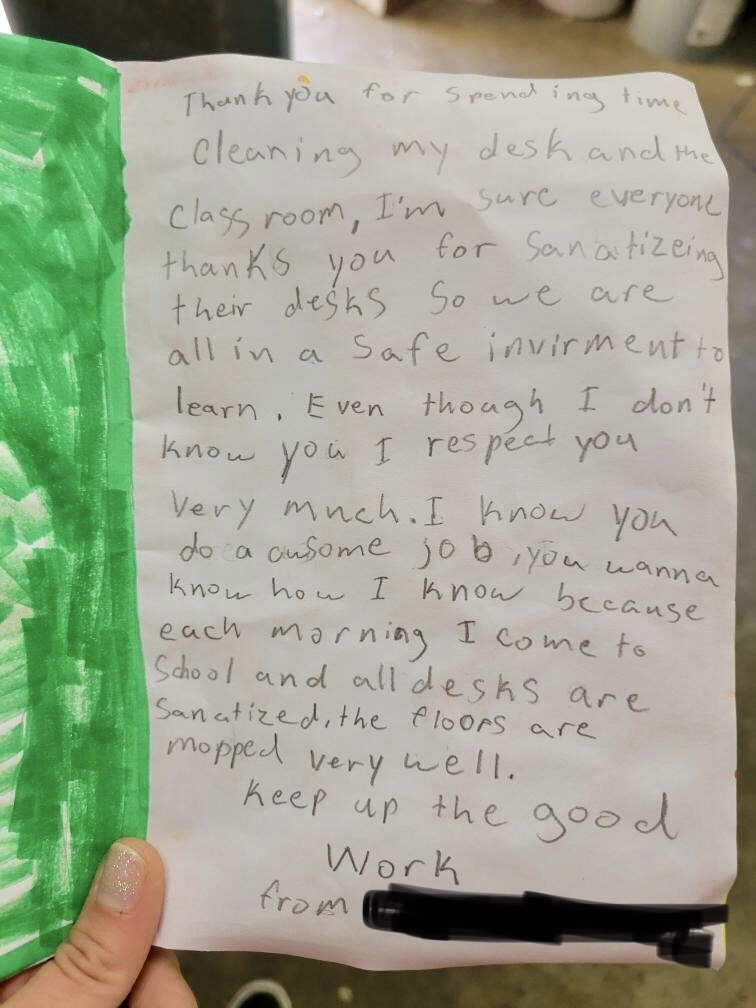 Thank you for spending time
Cleaning my desk and the
Class room, I'm sure everyone
thanks you for Sanatizeing
their desks So we are
all in a Safe invirment to
learn. Even though I don't
know you I respect you
Very much. I know you
do a ausome job, you wanna
know how I know because
each morning I come to
School and all desks are
Sanatized, the floors are
mopped very well.
Keep up the good
Work
from